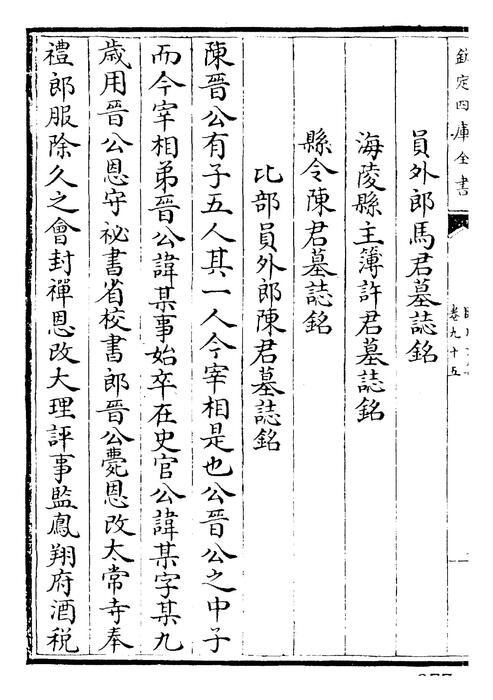 欽定四庫全書
卷九十五
員外郎馬君墓誌銘
海陵縣主簿許君墓誌銘
縣令陳君墓誌銘
比部員外郎陳君墓誌銘
陳晉公有子五人其一人今宰相是也公晉公之中子
而今宰相弟晉公諱某事始卒在史官公諱某字某九
歲用晉公恩守祕書省校書郎晉公薨恩改太常寺奉
禮郎服除久之會封禪恩改大理評事監鳳翔府酒税